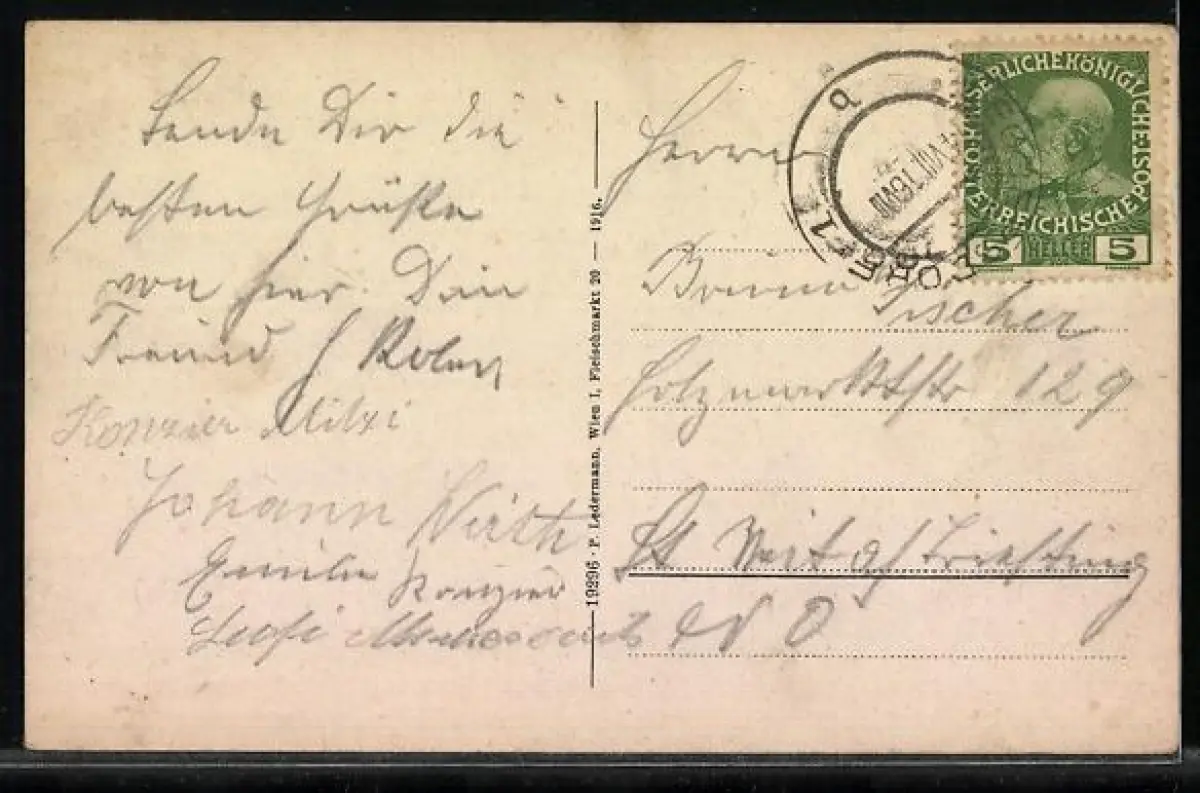 Sende Dir die
besten Grüße
von hier. Dein
Freund
Konzier Mitzi
Johann Wirth
Emilie Konzier
19296 · P. Ledermann, Wien I, Fleischmarkt 20 — 1916.
Herrn
Bruno Fischer
Holzmarktstr 129
St Veit a/Triesting
N Ö
KAISERLICHEKÖNIGLICHE
ÖSTERREICHISCHEPOST
5 HELLER 5